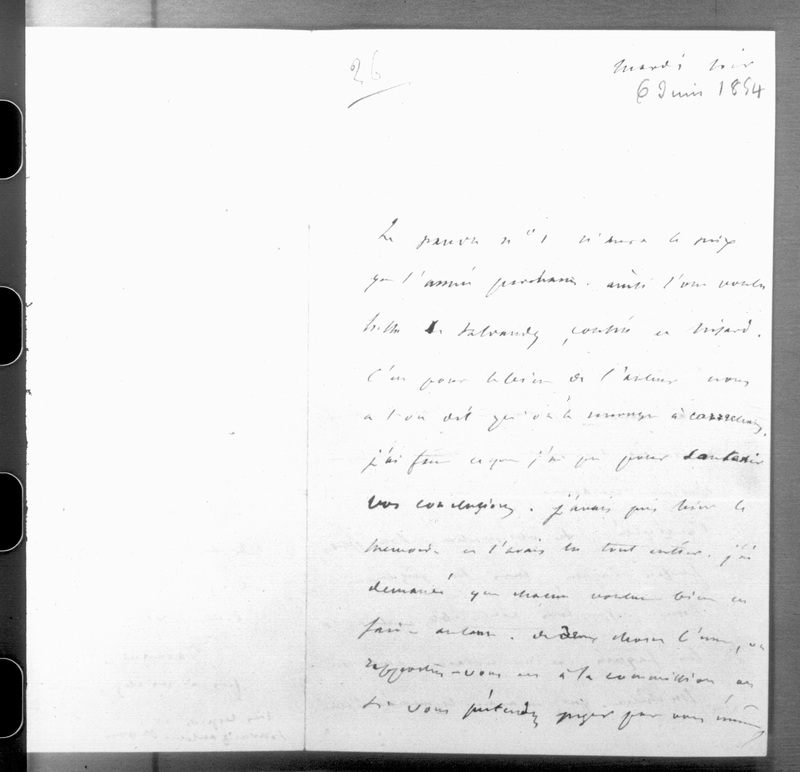 26
mardi soir
6 Juin 1854
Le pauvre n° 1 n'aura le prix
que l'année prochaine. ainsi l'ont voulu
de Salvandy, Cousin et Nisard.
C'est pour le bien de l'auteur nous
a-t-on dit qu'on le renvoye à
j'ai fait ce que j'ai pu pour soutenir
vos conclusions. j'avais pris hier le
memoire et l'avais lu tout entier. j'ai
demandé que chacun voulut bien en
faire autant. de deux choses l'une, ou
rapportez-vous en à la commission, ou
si vous prétendez juger par vous mêmes